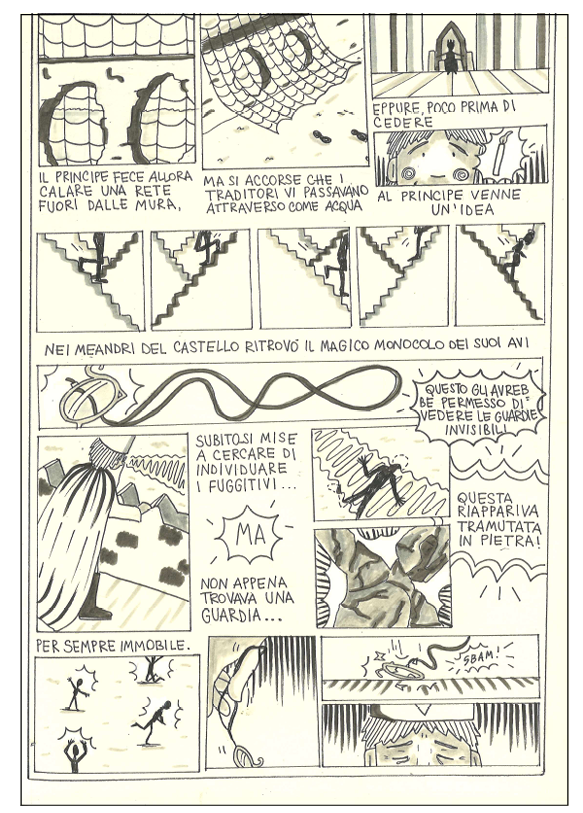 IL PRINCIPE FECE ALLORA
CALARE UNA RETE
FUORI DALLE MURA,
MA SI ACCORSE CHE I
TRADITORI VI PASSAVANO
ATTRAVERSO COME ACQUA
EPPURE, POCO PRIMA DI
CEDERE
AL PRINCIPE VENNE
UN'IDEA
NEI MEANDRI DEL CASTELLO RITROVÒ IL MAGICO MONOCOLO DEI SUOI AVI
QUESTO GLI AVREB
BE PERMESSO DI
VEDERE LE GUARDIE
INVISIBILI
SUBITO SI MISE
A CERCARE DI
INDIVIDUARE
I FUGGITIVI...
MA
NON APPENA
TROVAVA UNA
GUARDIA...
QUESTA
RIAPPARIVA
TRAMUTATA
IN PIETRA!
PER SEMPRE IMMOBILE.
SBAM!